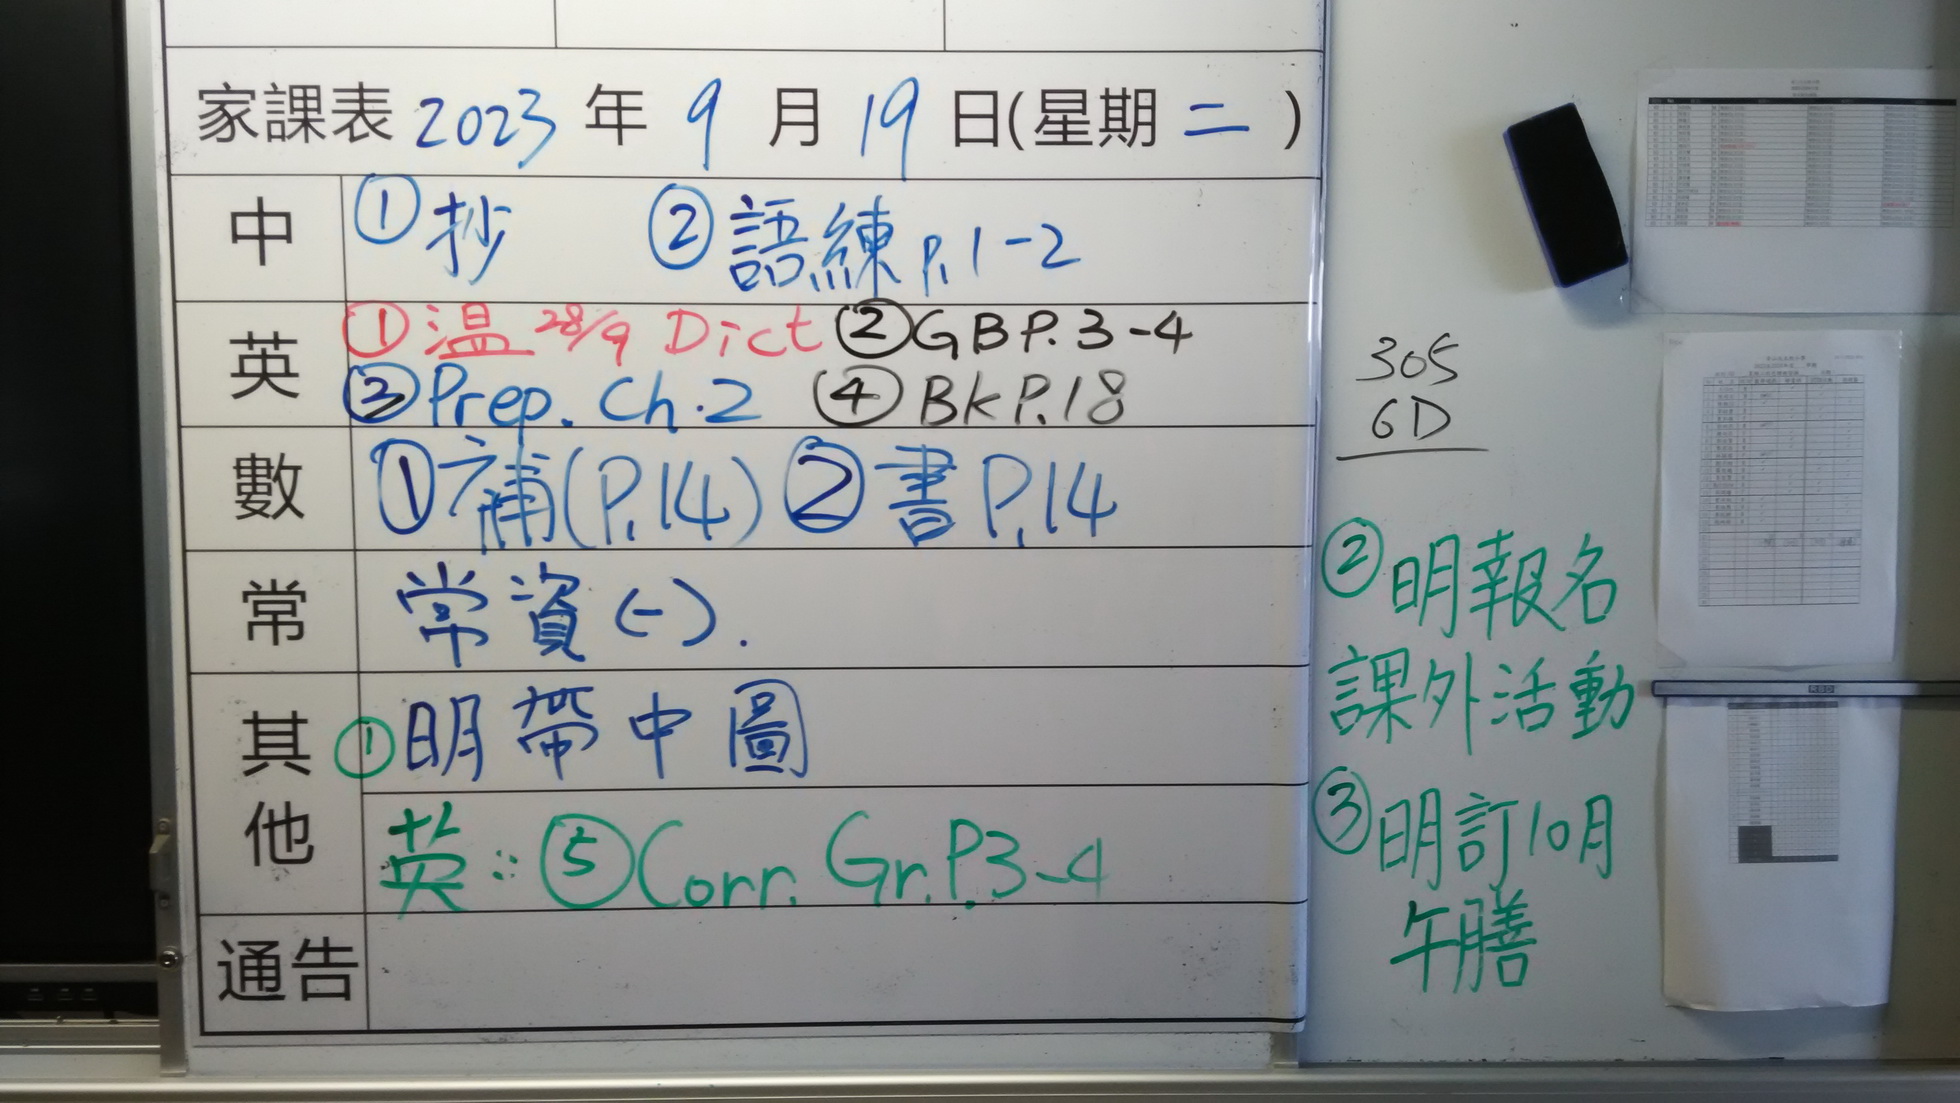 家課表 2023 年 9 月 19 日(星期 二 )
中 ①抄 ②語練 P.1-2
英 ①温 28/9 Dict ②GB P.3-4
③Prep. Ch.2 ④BK P.18
數 ①補(P.14) ②書 P.14
常 常資(一).
其他 ①明帶中圖
英：⑤Corr. Gr. P.3-4
通告
305
6D
②明報名
課外活動
③明訂10月
午膳